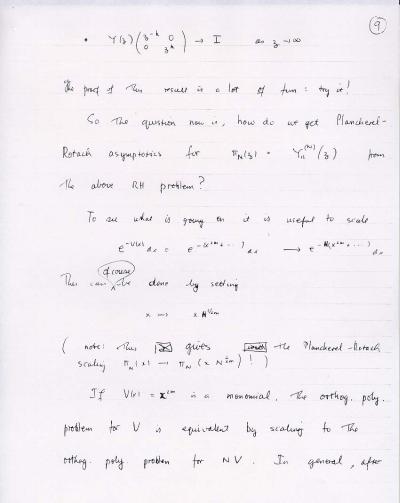 9
• Y(z) ( z^{-k} 0 ) → I as z → ∞
0 z^k
The proof of this result is a lot of fun : try it !
So the question now is, how do we get Plancherel-
Rotach asymptotics for π_N(z) = Y_{11}^{(N)}(z) from
the above RH problem ?
To see what is going on it is useful to scale
e^{-V(x)} dx = e^{-(x^{2m} + ...)} dx → e^{-N(x^{2m} + ...)} dx
This can of course be done by setting
x → x N^{1/2m}
( note: this gives the Plancherel-Rotach
scaling π_N(x) → π_N(x N^{1/2m}) ! )
If V(x) = x^{2m} is a monomial, the orthog. poly.
problem for V is equivalent by scaling to the
orthog. poly problem for NV. In general, after